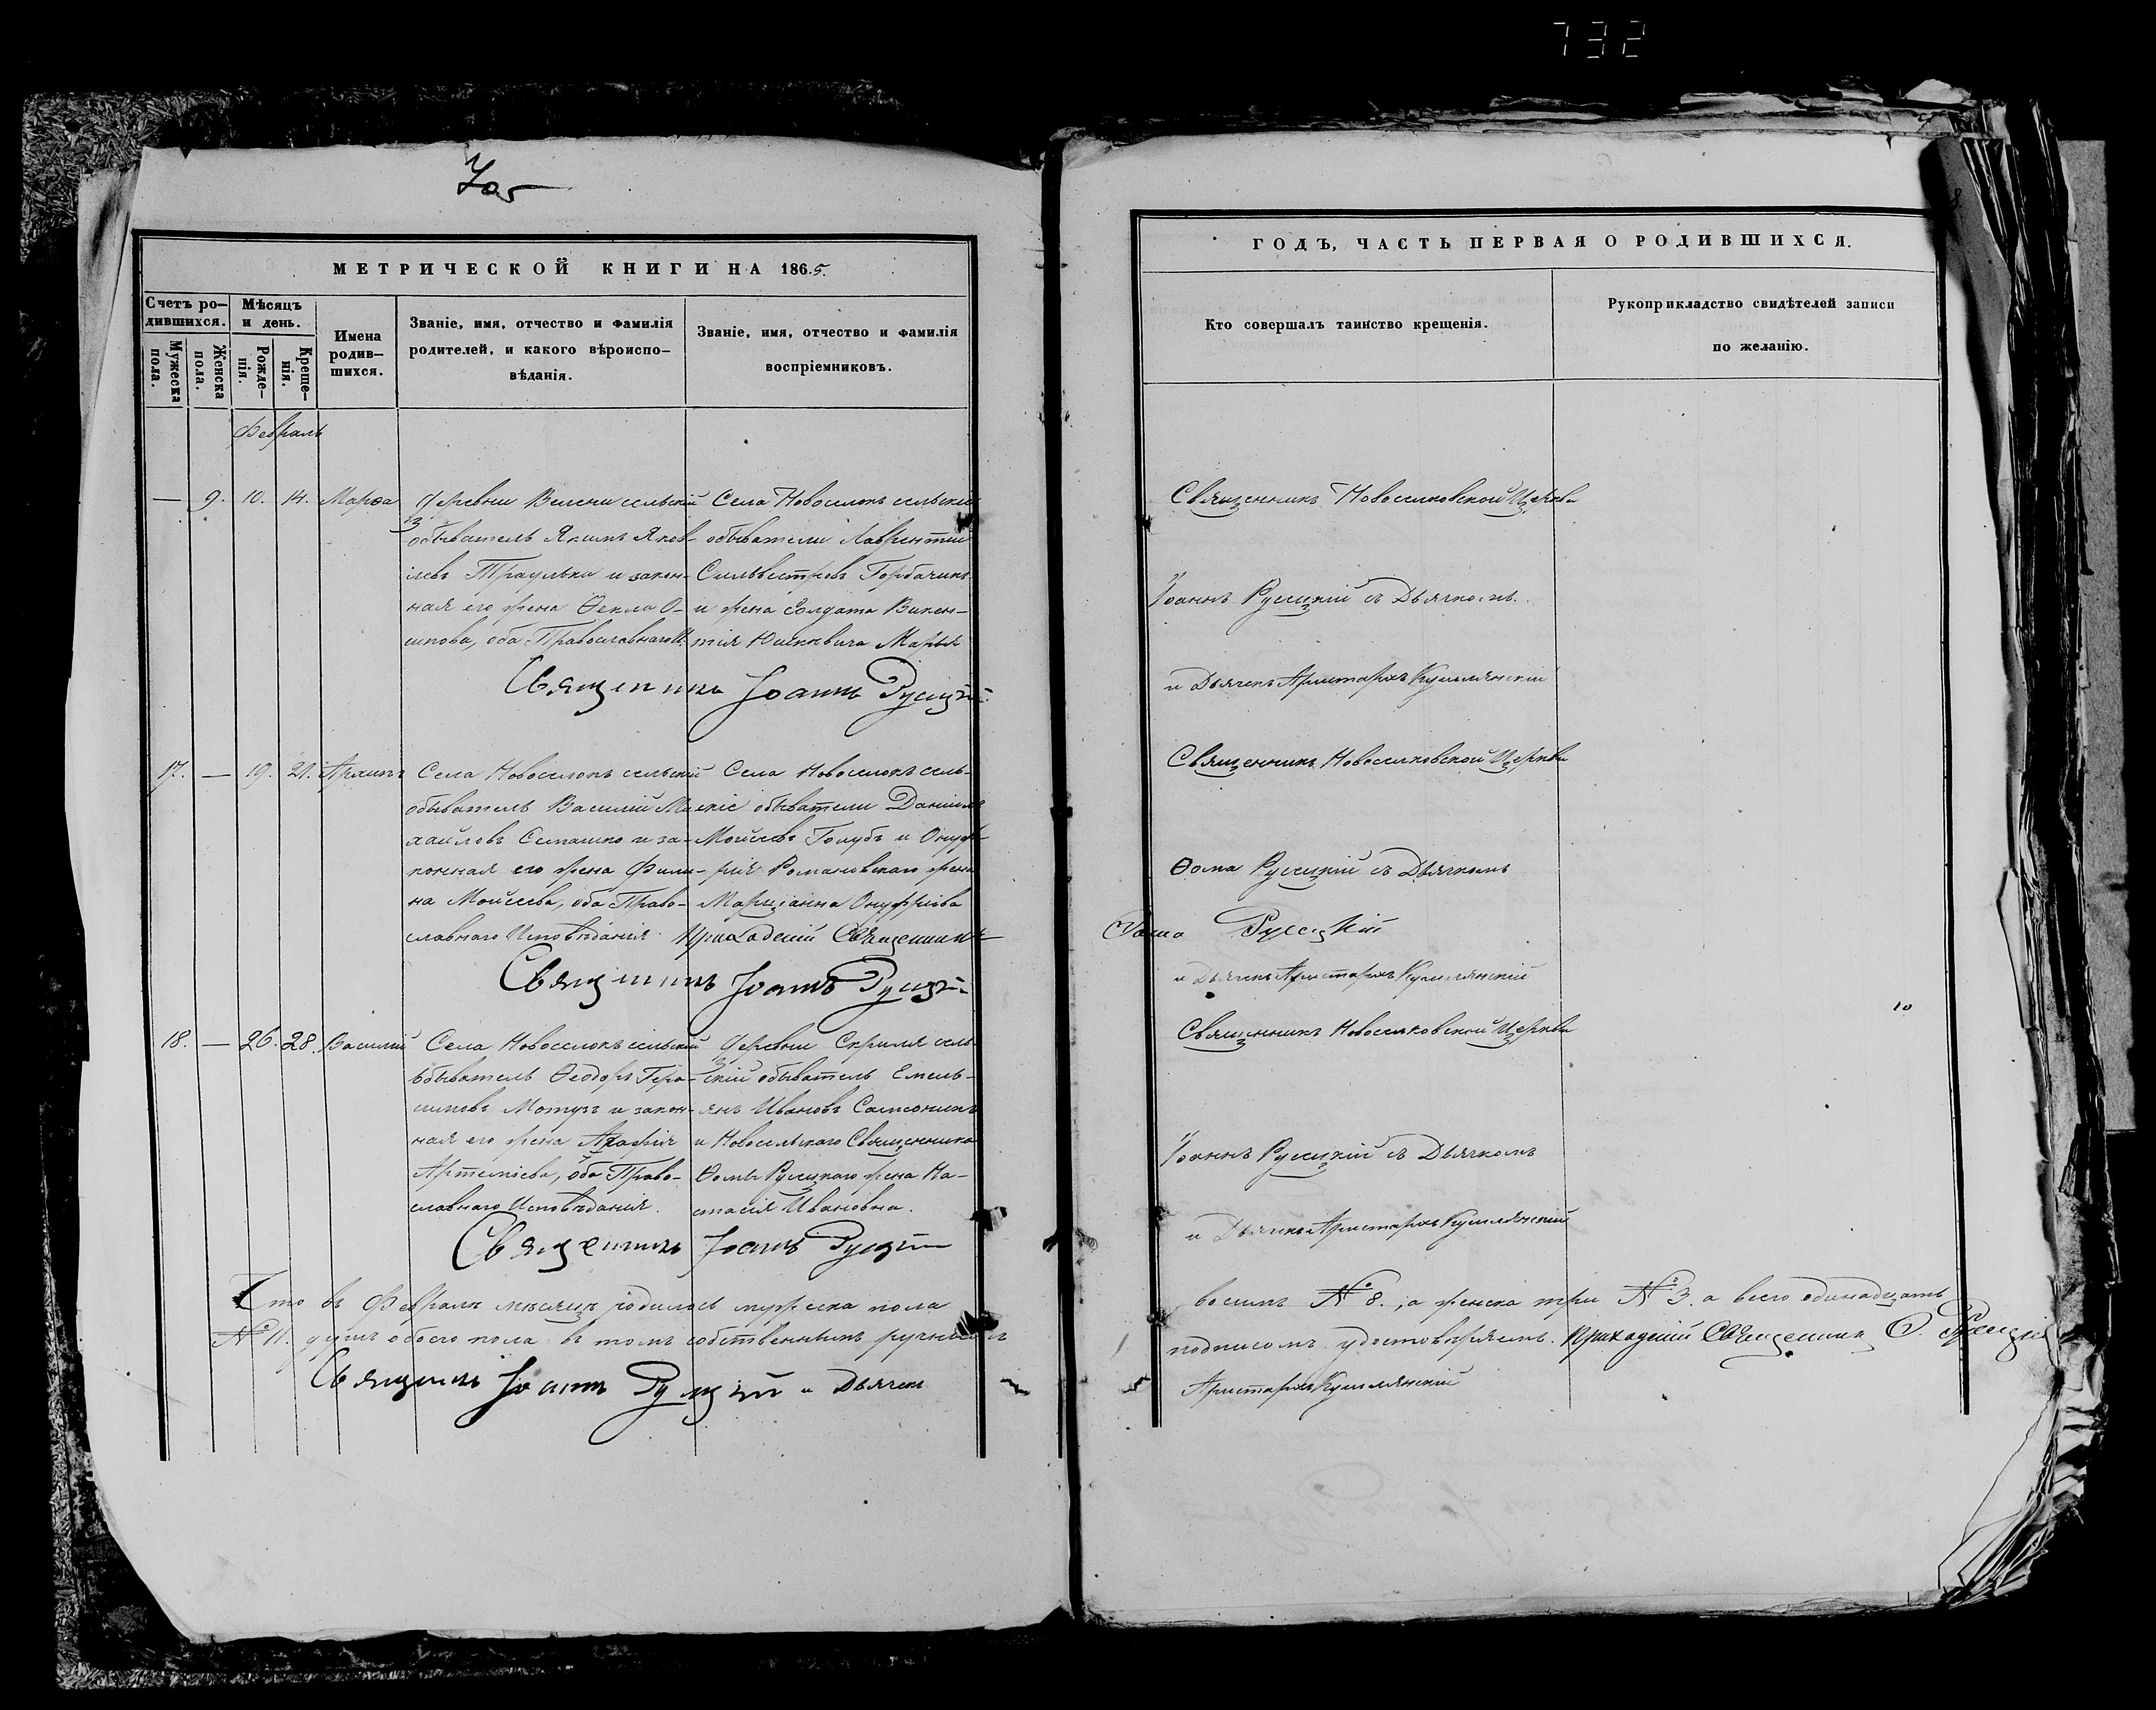 732
МЕТРИЧЕСКОЙ КНИГИ НА 1865.
Счетъ ро-
дившихся.
Мужеска пола.
Женска пола.
Мѣсяцъ
и день.
Рожде-
нія.
Креще-
нія.
Имена
родив-
шихся.
Званіе, имя, отчество и фамилія
родителей, и какого вѣроиспо-
вѣданія.
Званіе, имя, отчество и фамилія
воспріемниковъ.
Февраль
— 9. 10. 14. Марѳа
Деревни сельскій
обыватель Якимъ Яков-
левъ и закон-
ная его жена Ѳекла О-
сипова, оба Православнаго И.
Села Новоселокъ сельскіе
обыватели Лаврентій
Сильвестровъ Горбачикъ
и жена Солдата Викен-
тія Юшкевича Марья
Священникъ Іоаннъ Русецкій
17. — 19. 21. Архипъ
Села Новоселокъ сельскій
обыватель Василій Ми-
хайловъ Семашко и за-
конная его жена Фили-
на Мойсеева, оба Право-
славнаго Исповѣданія.
Села Новоселокъ сель-
скіе обыватели Даніилъ
Мойсеевъ Голубъ и Онуф-
рія Романовскаго жена
Маріанна Онуфріева
Приходскій Священникъ
Священникъ Іоаннъ Русецкій
18. — 26. 28. Василій
Села Новоселокъ сельскій
обыватель Ѳеодоръ Гера-
симовъ Мотузъ и закон-
ная его жена Агафія
Артеміева, оба Право-
славнаго Исповѣданія.
Деревни сель-
скій обыватель Емель-
янъ Ивановъ Самсоникъ
и Новосельскаго Священника
Ѳомы Русецкаго жена На-
стасія Ивановна.
Священникъ Іоаннъ Русецкій
Что въ Февралѣ мѣсяцѣ родилось мужеска пола
№ 11. душъ обоего пола въ томъ собственнымъ ручнымъ
Священникъ Іоаннъ Русецкій и Дьячекъ
ГОДЪ, ЧАСТЬ ПЕРВАЯ О РОДИВШИХСЯ.
Кто совершалъ таинство крещенія.
Рукоприкладство свидѣтелей записи
по желанію.
Священникъ Новоселковской Церкви
Іоаннъ Русецкій съ Дьячкомъ.
и Дьячекъ Аристархъ
Священникъ Новоселковской Церкви
Ѳома Русецкій съ Дьячкомъ
Ѳома Русецкій
и Дьячекъ Аристархъ
10
Священникъ Новоселковской Церкви
Іоаннъ Русецкій съ Дьячкомъ
и Дьячекъ Аристархъ
восемь № 8., а женска три № 3. а всего одинадцать
подписомъ удостовѣряемъ. Приходскій Священникъ Ѳ. Русецкій
Аристархъ